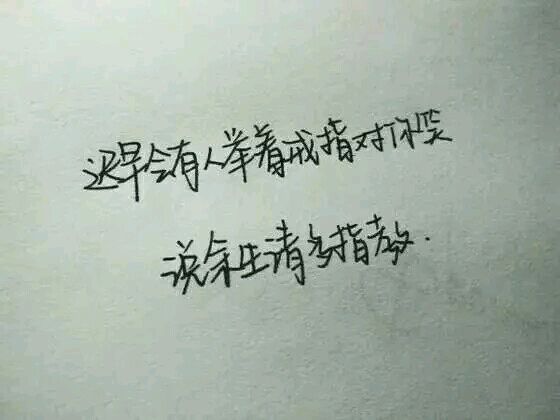 迟早会有人举着戒指对你笑
说余生请多指教.